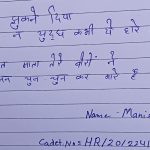 झुकने दिया
न युद्ध कभी ये हारे
माता तेरे वीरों ने
चुन चुन कर मारे है
Name - Manis
Cadet. No = HR/20/2241